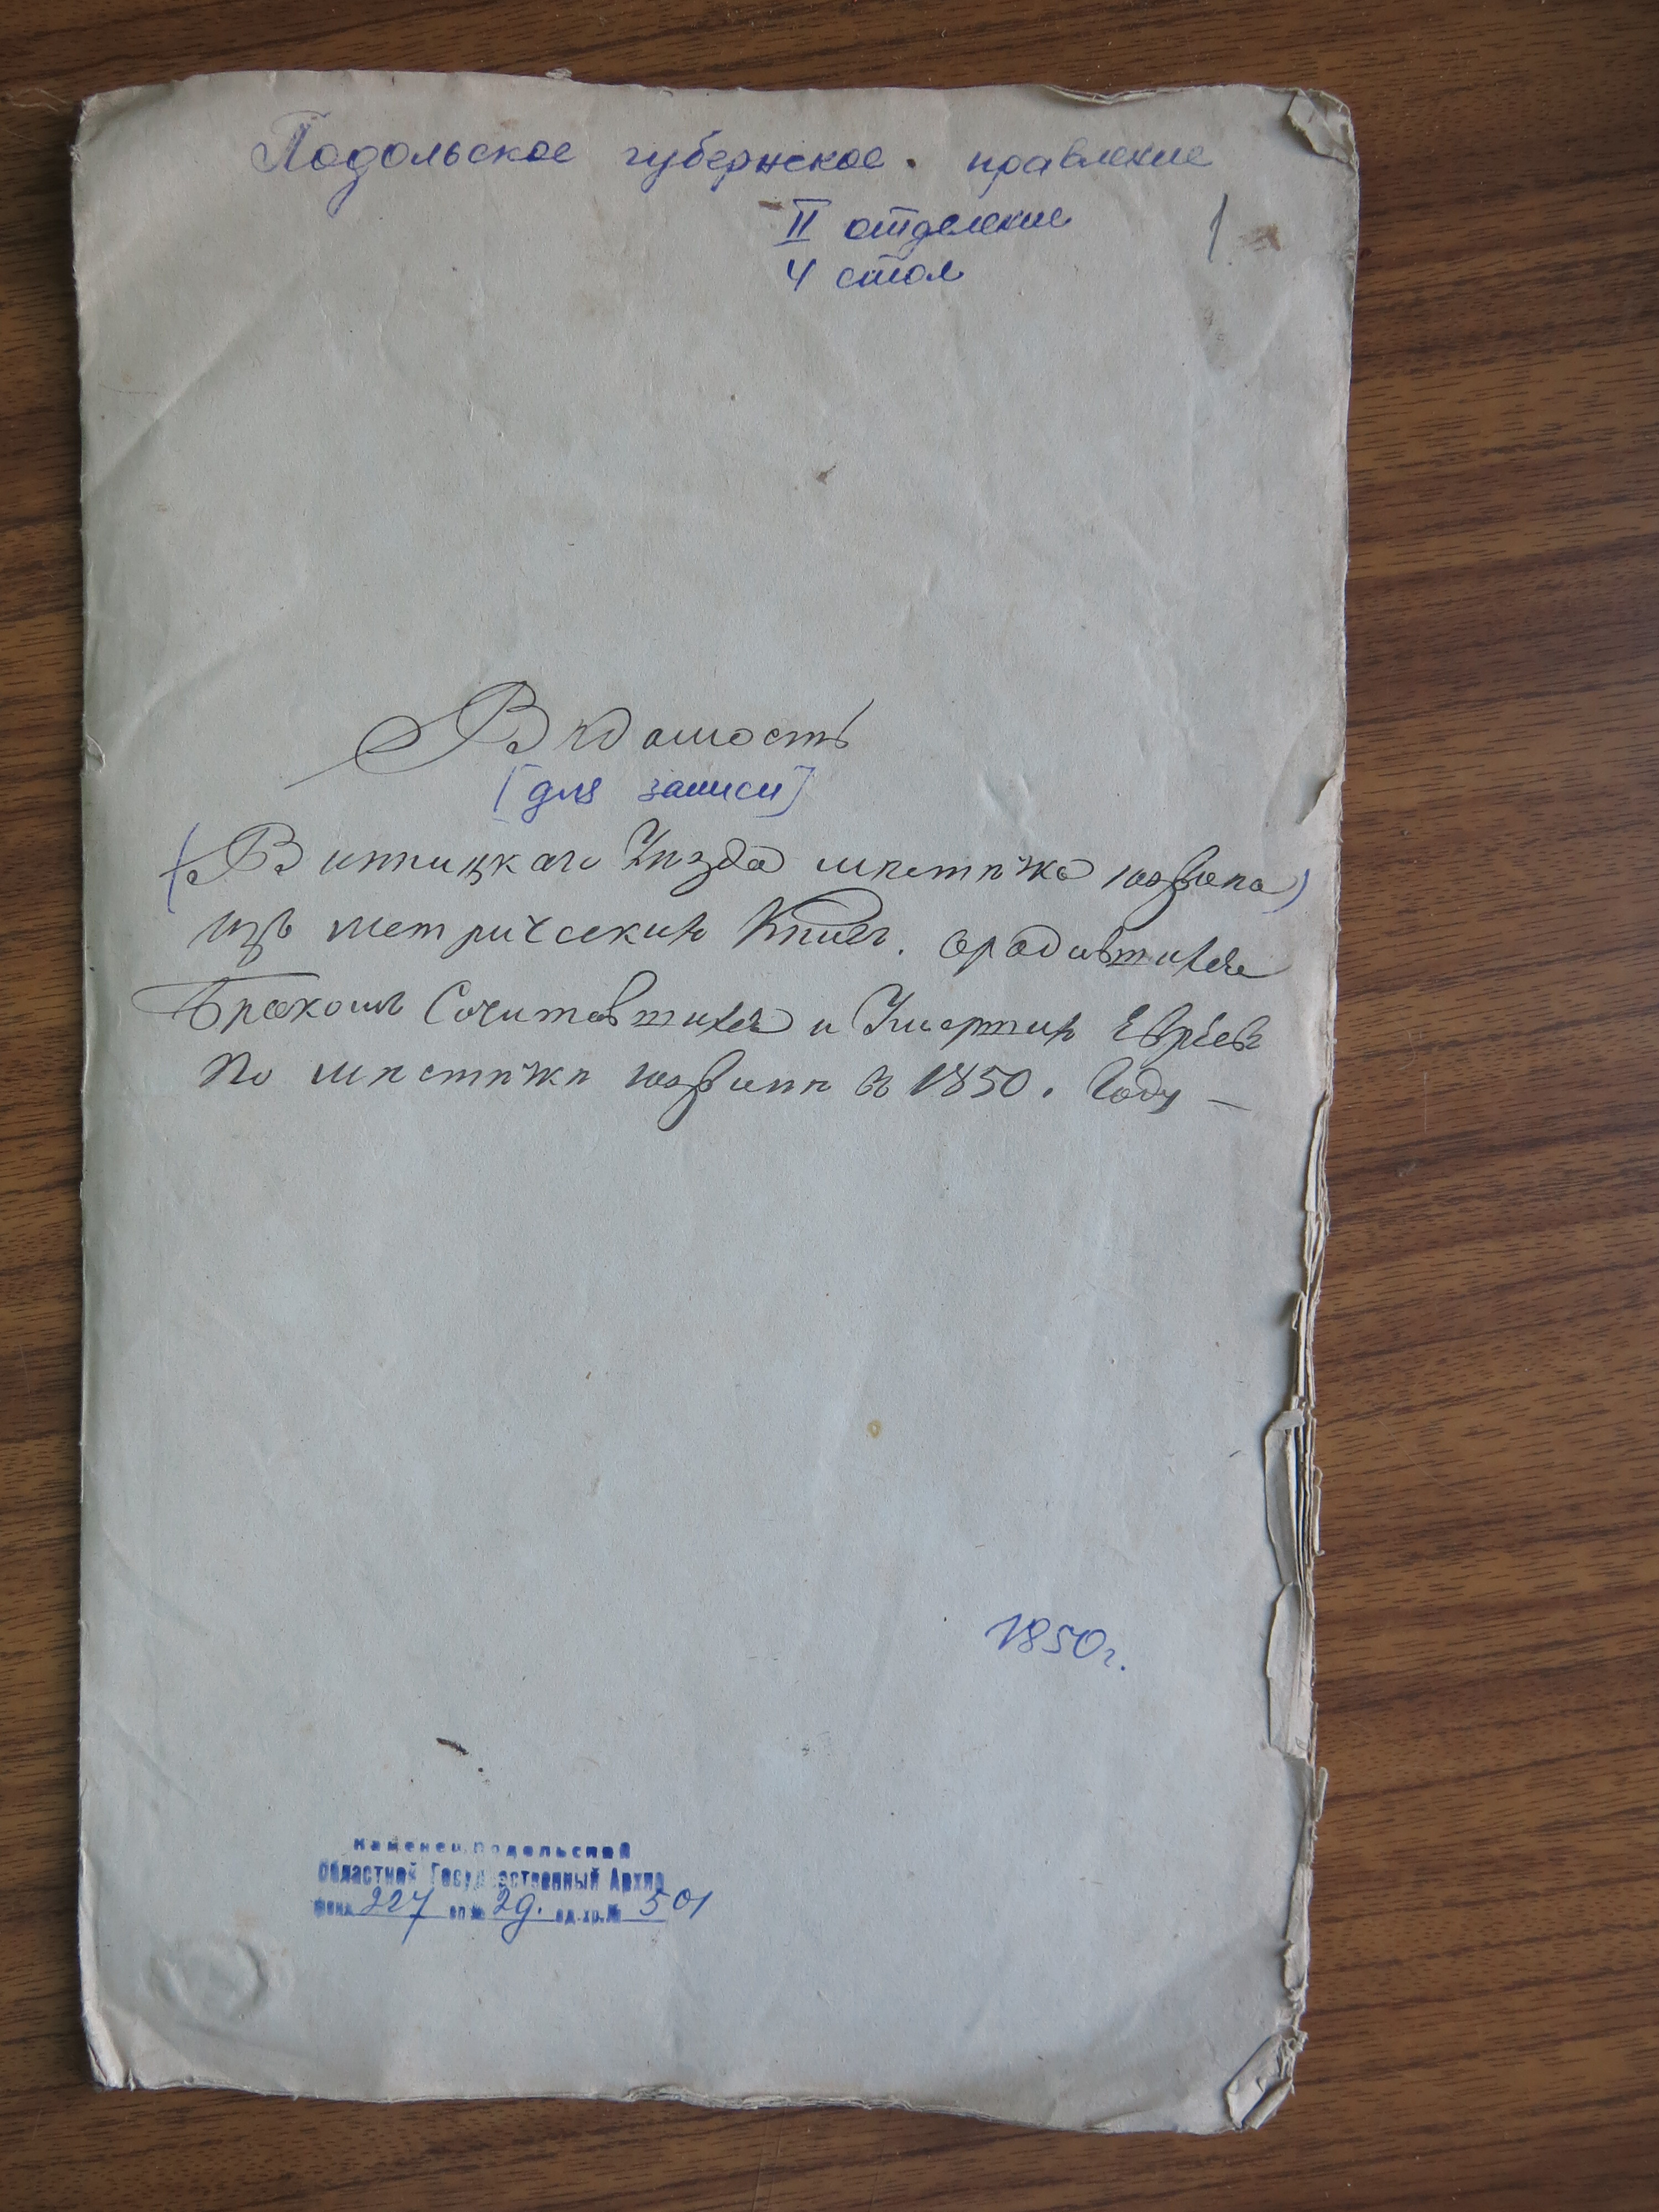 Подольское губернское правление
II отделение
4 стол
1.
Вѣдомость
[для записи]
(Винницкаго Уѣзда мѣстѣчка Юзвина)
изъ метрическихъ Книгъ. ородившихся
Бракомъ Сочитавшихся и Умершихъ Евреевъ
По мѣстѣчкѣ Юзвинѣ въ 1850. Году —
1850г.
Каменец.Подольской
Областной Государственный Архив
фонд 227 оп № 29. ед.хр.№ 501